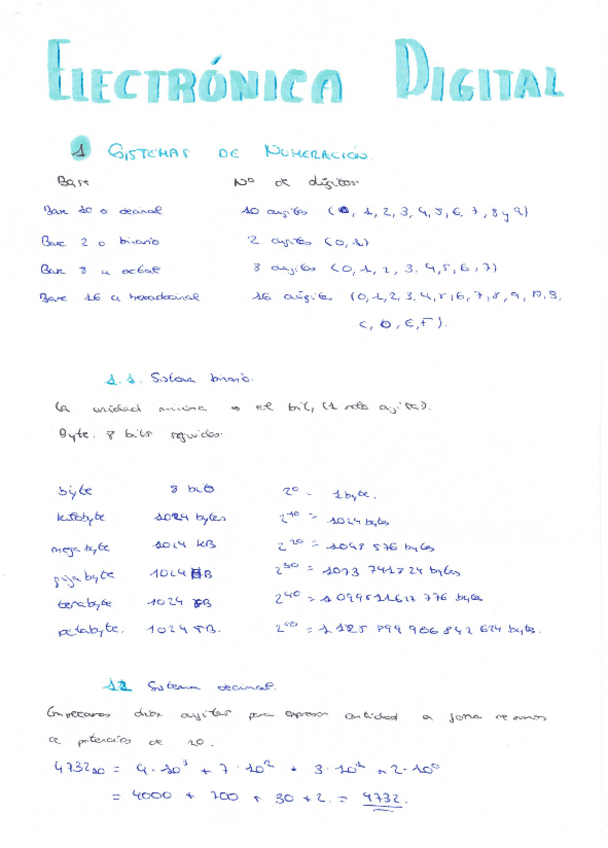 ELECTRÓNICA DIGITAL
1 SISTEMAS DE NUMERACIÓN.
Base Nº de dígitos
Base 10 o decimal 10 dígitos (0, 1, 2, 3, 4, 5, 6, 7, 8 y 9)
Base 2 o binario 2 dígitos (0, 1)
Base 8 u octal 8 dígitos (0, 1, 2, 3, 4, 5, 6, 7)
Base 16 u hexadecimal 16 dígitos (0, 1, 2, 3, 4, 5, 6, 7, 8, 9, A, B,
C, D, E, F).
1.1. Sistema binario.
La unidad mínima es el bit, (1 solo dígito).
Byte: 8 bits seguidos.
byte 8 bits 2^0 = 1 byte.
kilobyte 1024 bytes 2^10 = 1024 bytes
megabyte 1024 kB 2^20 = 1048 576 bytes
gigabyte 1024 B 2^30 = 1073 741824 bytes
terabyte 1024 GB 2^40 = 1 099511627 776 bytes
petabyte. 1024 TB. = 1 125 899 906 842 624 bytes.
1.2 Sistema decimal.
dichos dígitos para expresar cantidad en forma de sumas
de potencias de 10.
4732₁₀ = 4·10^3 + 7·10^2 + 3·10^1 + 2·10^0
= 4000 + 700 + 30 + 2 = 4732.